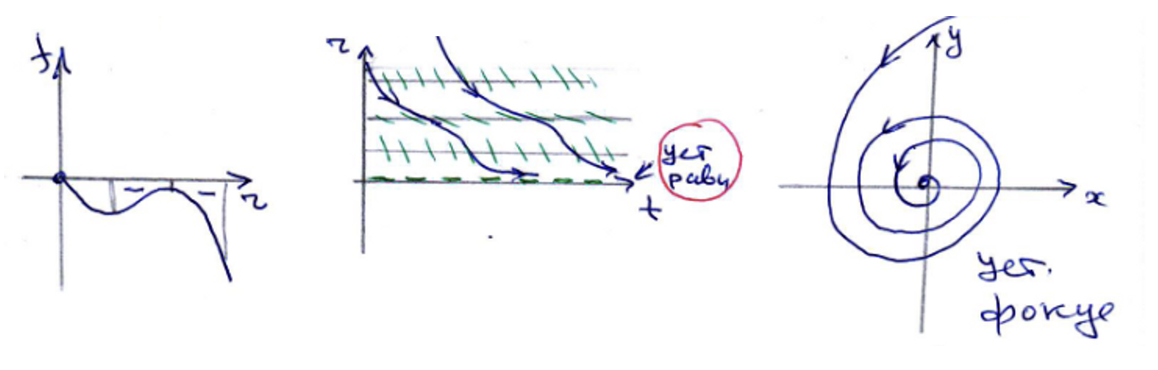 f
r
r
t
уст
равн
y
x
уст.
фокус